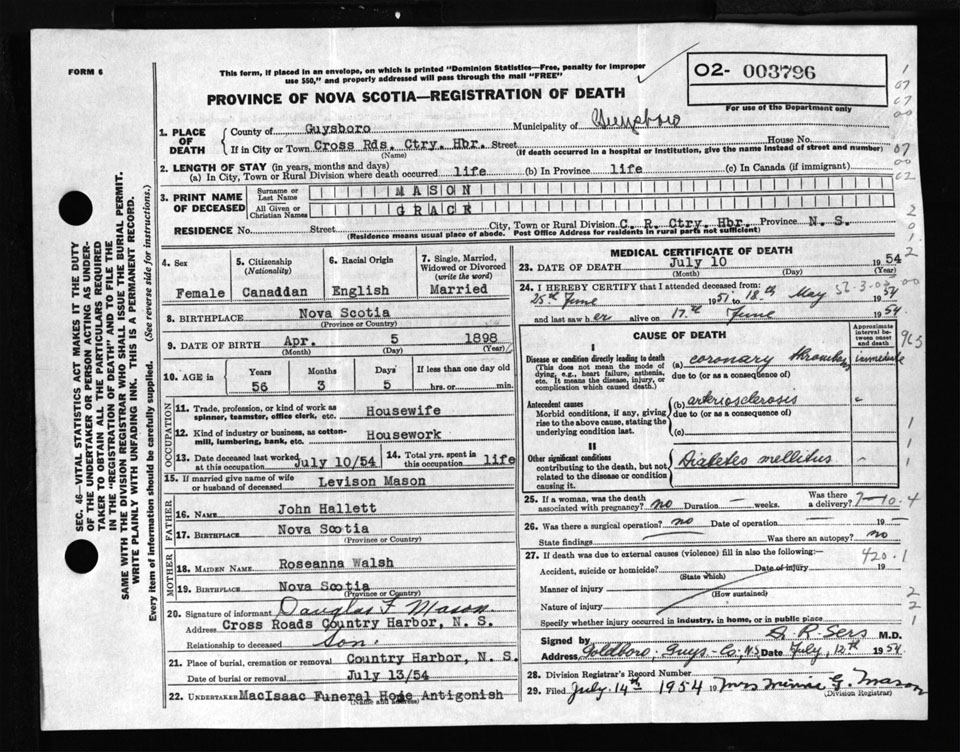 FORM 6
This form, if placed in an envelope, on which is printed "Dominion Statistics—Free, penalty for improper
use $50," and properly addressed will pass through the mail "FREE"
02- 003796
For use of the Department only
PROVINCE OF NOVA SCOTIA—REGISTRATION OF DEATH
1. PLACE OF DEATH
County of Guysboro Municipality of Guysboro
If in City or Town Cross Rds. Ctry. Hbr. Street House No.
(Name) (If death occurred in a hospital or institution, give the name instead of street and number)
2. LENGTH OF STAY (in years, months and days)
(a) In City, Town or Rural Division where death occurred life (b) In Province life (c) In Canada (if immigrant)
3. PRINT NAME OF DECEASED
Surname or Last Name MASON
All Given or Christian Names GRACE
RESIDENCE No. Street City, Town or Rural Division C. R. Ctry. Hbr. Province N. S.
(Residence means usual place of abode. Post Office Address for residents in rural parts not sufficient)
4. Sex
Female
5. Citizenship
(Nationality)
Canaddan
6. Racial Origin
English
7. Single, Married,
Widowed or Divorced
(write the word)
Married
8. BIRTHPLACE Nova Scotia
(Province or Country)
9. DATE OF BIRTH Apr. 5 1898
(Month) (Day) (Year)
10. AGE in
Years Months Days If less than one day
56 3 5 hrs. or min.
OCCUPATION
11. Trade, profession, or kind of work as
spinner, teamster, office clerk, etc. Housewife
12. Kind of industry or business, as cotton-
mill, lumbering, bank, etc. Housework
13. Date deceased last worked
at this occupation July 10/54
14. Total yrs. spent in
this occupation life
15. If married give name of wife
or husband of deceased Levison Mason
FATHER
16. NAME John Hallett
17. BIRTHPLACE Nova Scotia
(Province or Country)
MOTHER
18. MAIDEN NAME Roseanna Walsh
19. BIRTHPLACE Nova Scotia
(Province or Country)
20. Signature of informant Douglas F Mason
Address Cross Roads Country Harbor, N. S.
Relationship to deceased Son.
21. Place of burial, cremation or removal Country Harbor, N. S.
Date of burial or removal July 13/54
22. UNDERTAKER MacIsaac Funeral Home Antigonish
(Name and Address)
MEDICAL CERTIFICATE OF DEATH
23. DATE OF DEATH July 10 1954
(Month) (Day) (Year)
24. I HEREBY CERTIFY that I attended deceased from:
25th June 1951 to 18th May 1954
and last saw her alive on 17th June 1954
CAUSE OF DEATH
Approximate
interval between
onset and death
I
Disease or condition directly leading to death
(This does not mean the mode of
dying, e.g., heart failure, asthenia,
etc. It means the disease, injury, or
complication which caused death.)
(a) coronary thrombosis immediate
due to (or as a consequence of)
Antecedent causes
Morbid conditions, if any, giving
rise to the above cause, stating the
underlying condition last.
(b) arteriosclerosis
due to (or as a consequence of)
(c)
II
Other significant conditions
contributing to the death, but not
related to the disease or condition
causing it.
Diabetes mellitus
25. If a woman, was the death
associated with pregnancy? no Duration — weeks.
Was there
a delivery?
7-10.4
26. Was there a surgical operation? no Date of operation — 19 —
State findings Was there an autopsy? no
27. If death was due to external causes (violence) fill in also the following:—
420.1
Accident, suicide or homicide? Date of injury 19
(State which)
Manner of injury
(How sustained)
Nature of injury
Specify whether injury occurred in industry, in home, or in public place
Signed by A R Sers M.D.
Address, Goldboro, Guys-Co, N.S Date July, 12th 1954
28. Division Registrar's Record Number
29. Filed July 14th 1954 19 Mrs Minnie G. Mason
(Division Registrar)
SEC. 46—VITAL STATISTICS ACT MAKES IT THE DUTY
OF THE UNDERTAKER OR PERSON ACTING AS UNDER-
TAKER TO OBTAIN ALL THE PARTICULARS REQUIRED
IN THE "REGISTRATION OF DEATH" AND TO FILE THE
SAME WITH THE DIVISION REGISTRAR WHO SHALL ISSUE THE BURIAL PERMIT.
WRITE PLAINLY WITH UNFADING INK. THIS IS A PERMANENT RECORD.
Every item of information should be carefully supplied. (See reverse side for instructions.)